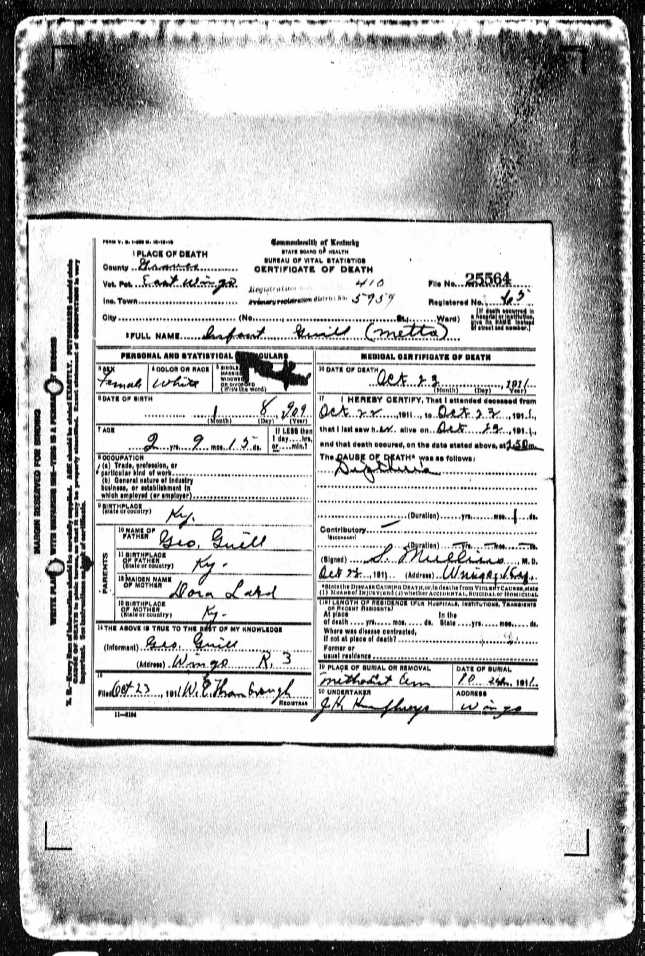 FORM V. S. 1-
Commonwealth of Kentucky
STATE BOARD OF HEALTH
BUREAU OF VITAL STATISTICS
CERTIFICATE OF DEATH
1 PLACE OF DEATH
County Graves
Vot. Pct. East Wingo
Registration 410
File No. 25564
Inc. Town
Primary registration district No. 5959
Registered No.
City (No. St.; Ward)
(If death occurred in a hospital or institution, give its NAME instead of street and number.)
2 FULL NAME Infant Guill (Metta)
PERSONAL AND STATISTICAL
3 SEX Female
4 COLOR OR RACE White
5 SINGLE
MARRIED
WIDOWED
OR DIVORCED
(Write the word)
6 DATE OF BIRTH
1 8 909
(Month) (Day) (Year)
7 AGE
2 yrs. 9 mos. 15 ds.
If LESS than 1 day hrs. or min.?
8 OCCUPATION
(a) Trade, profession, or particular kind of work
(b) General nature of industry business, or establishment in which employed (or employer)
9 BIRTHPLACE
(State or country) Ky.
PARENTS
10 NAME OF FATHER Geo. Guill
11 BIRTHPLACE OF FATHER
(State or country) Ky.
12 MAIDEN NAME OF MOTHER Dora
13 BIRTHPLACE OF MOTHER
(State or country) Ky.
14 THE ABOVE IS TRUE TO THE BEST OF MY KNOWLEDGE
(Informant) Geo. Guill
(Address) Wingo R. 3
15
Filed Oct 23, 1911
REGISTRAR
11—5184
MEDICAL CERTIFICATE OF DEATH
16 DATE OF DEATH Oct 23, 1911
(Month) (Day) (Year)
17 I HEREBY CERTIFY, That I attended deceased from
Oct 22 1911, to Oct 23, 1911,
that I last saw her alive on Oct 1911,
and that death occured, on the date stated above, at m.
The CAUSE OF DEATH* was as follows:
Diptheria
(Duration) yrs. mos. 1 ds.
Contributory
(SECONDARY)
(Duration) yrs. mos. ds.
(Signed) S. Mullins M. D.
Oct 1911 (Address) Wingo, Ky.
*State the DISEASE CAUSING DEATH, or, in deaths from VIOLENT CAUSES, state (1) MEANS OF INJURY; and (2) whether ACCIDENTAL, SUICIDAL or HOMICIDAL
18 LENGTH OF RESIDENCE (FOR HOSPITALS, INSTITUTIONS, TRANSIENTS OR RECENT RESIDENTS)
At place of death yrs. mos. ds. In the State yrs. mos. ds.
Where was disease contracted, if not at place of death?
Former or usual residence
19 PLACE OF BURIAL OR REMOVAL
Methodist Cem
DATE OF BURIAL
10 24, 1911
20 UNDERTAKER
J.H. Humphreys
ADDRESS
Wingo
MARGIN RESERVED FOR BINDING